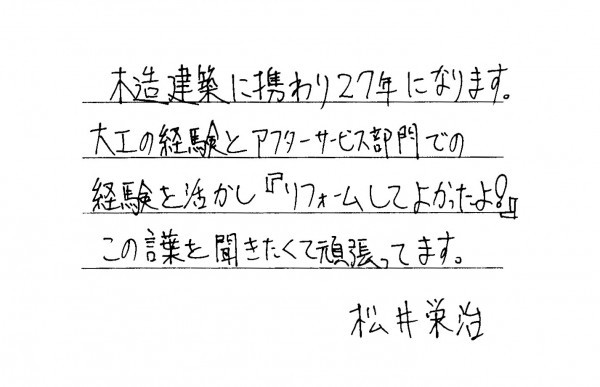 木造建築に携わり27年になります。
大工の経験とアフターサービス部門での
経験を活かし『リフォームしてよかったよ!』
この言葉を聞きたくて頑張ってます。
松井栄治